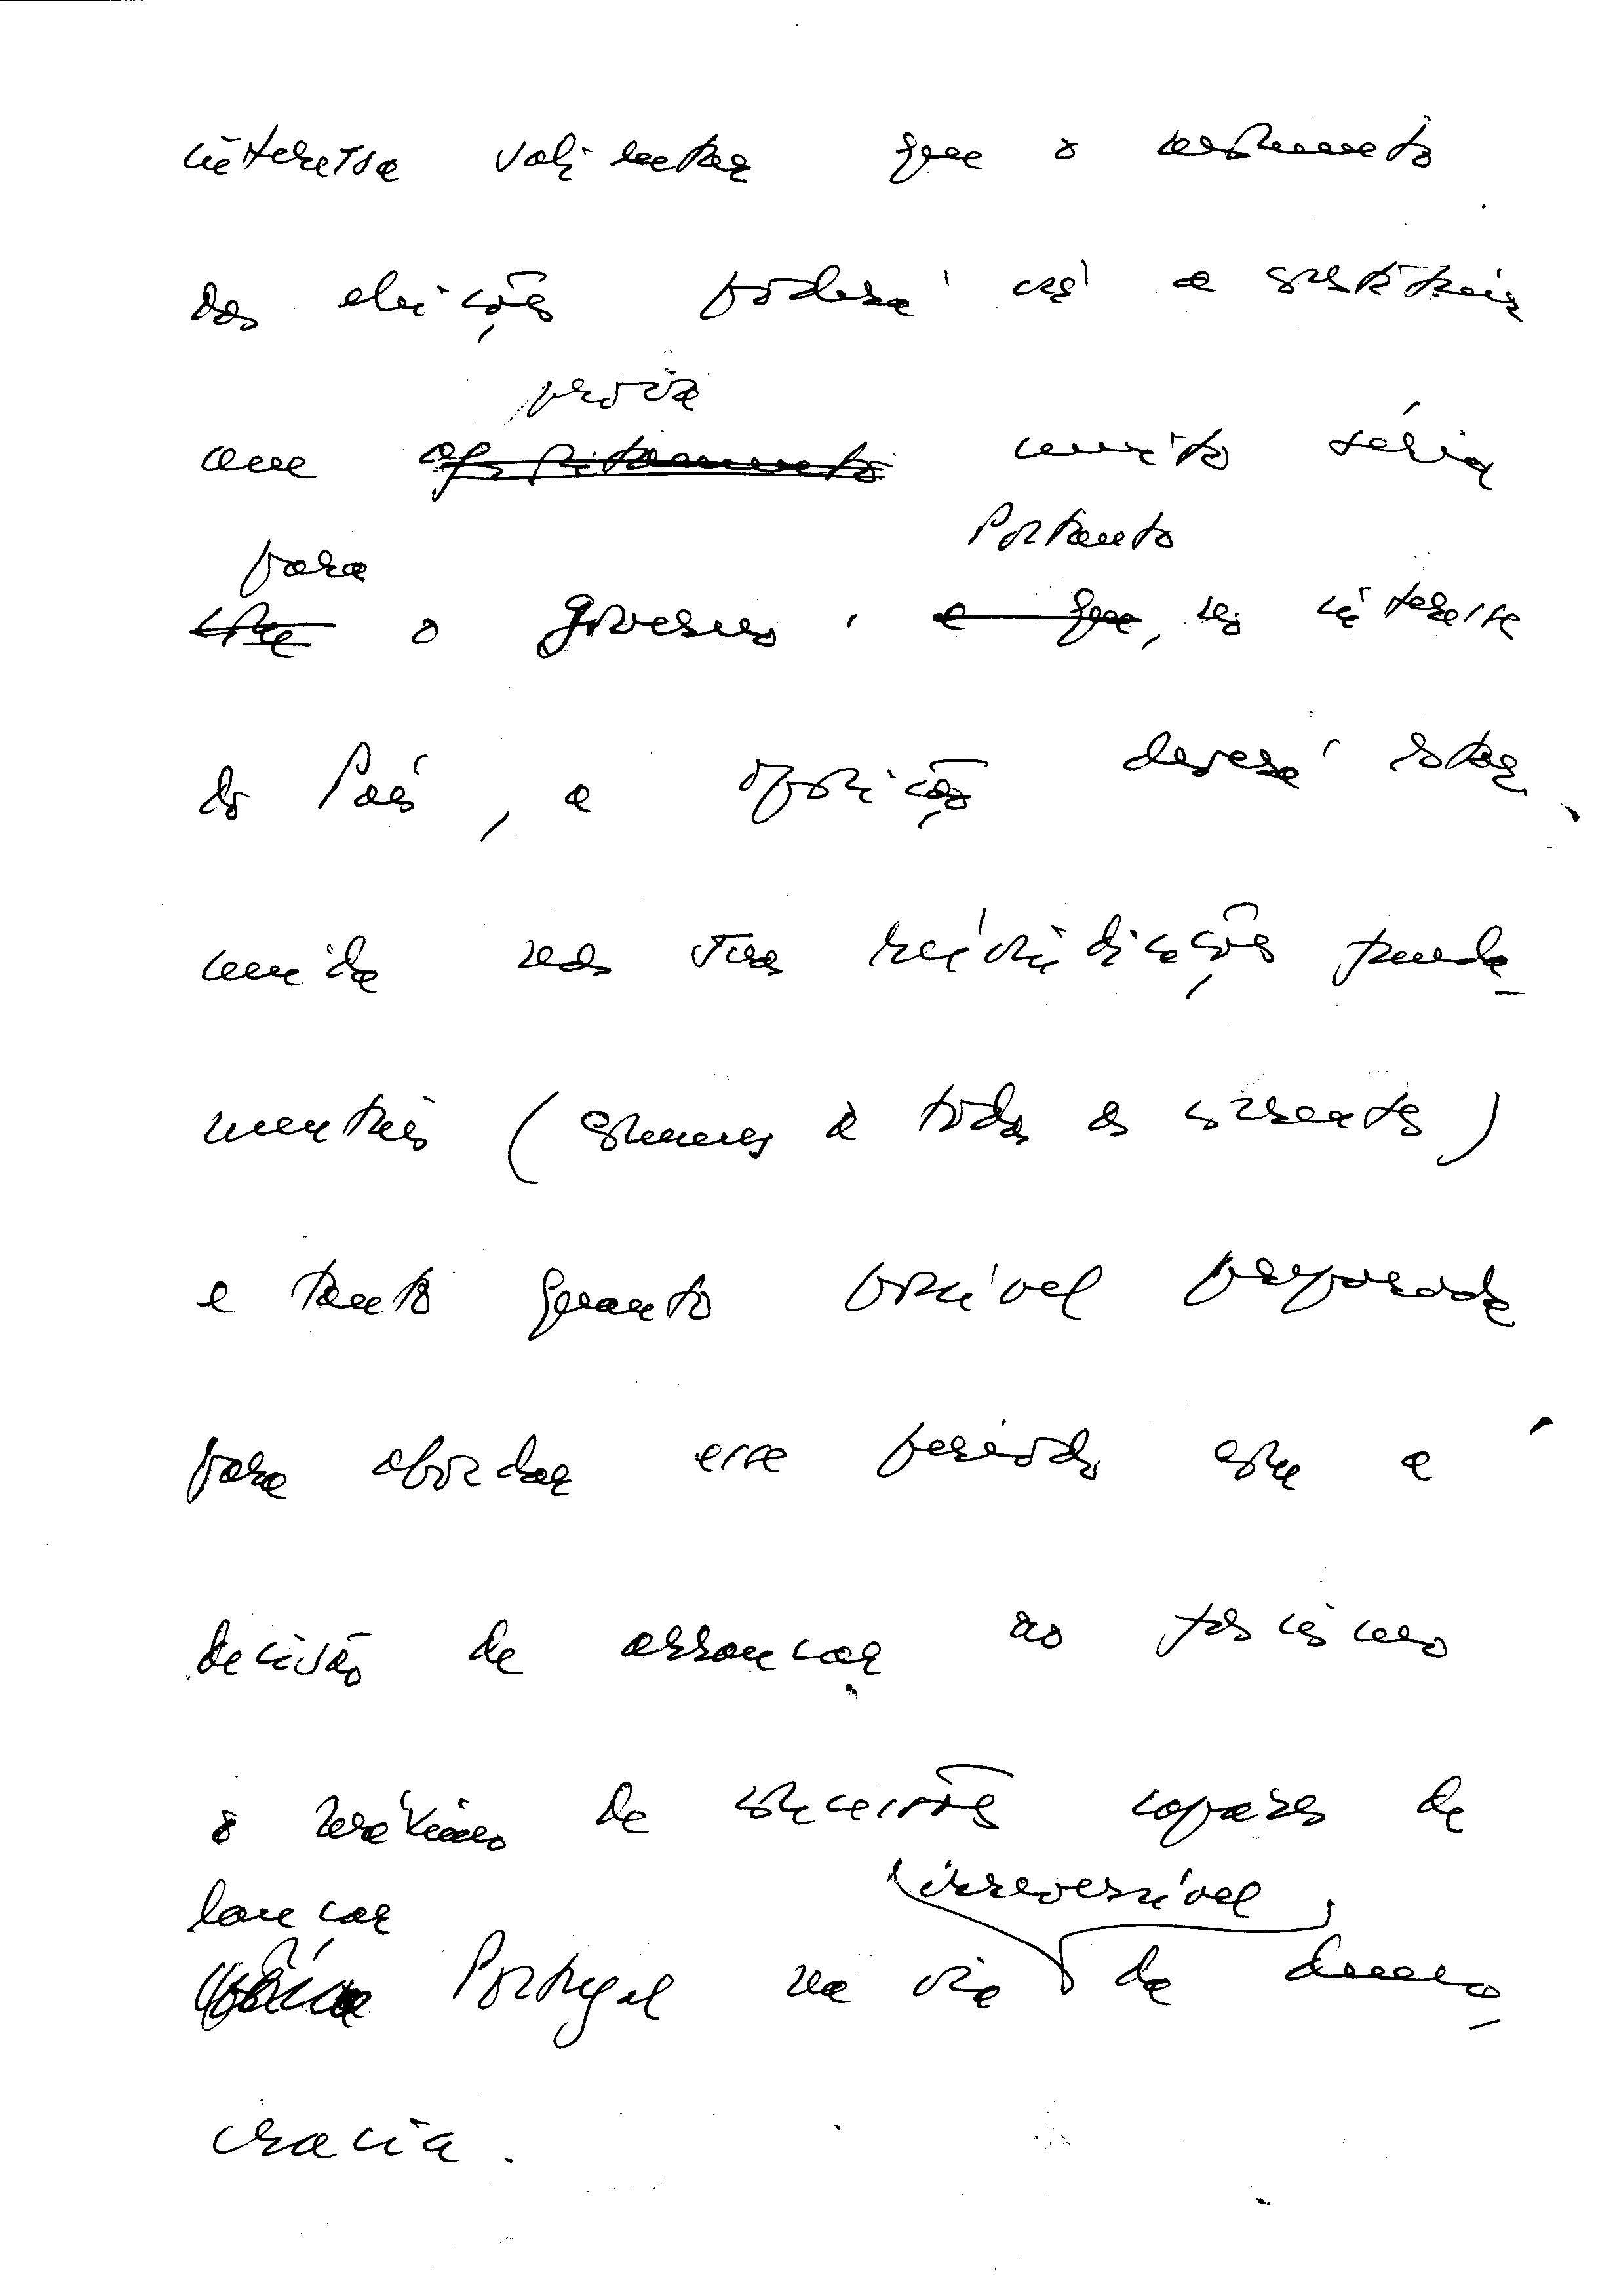 interessa salientar que o momento
das eleições poderá vir a constituir
uma prova muito séria
para o governo. Portanto, no interesse
do País, a oposição deverá estar
unida nas suas reivindicações funda-
mentais (comuns a todas as correntes)
e tanto quanto possível preparada
para abordar esse período com a
decisão de arrancar ao fascismo
o máximo de concessões capazes de
lançar
Portugal na via irreversível da demo-
cracia.